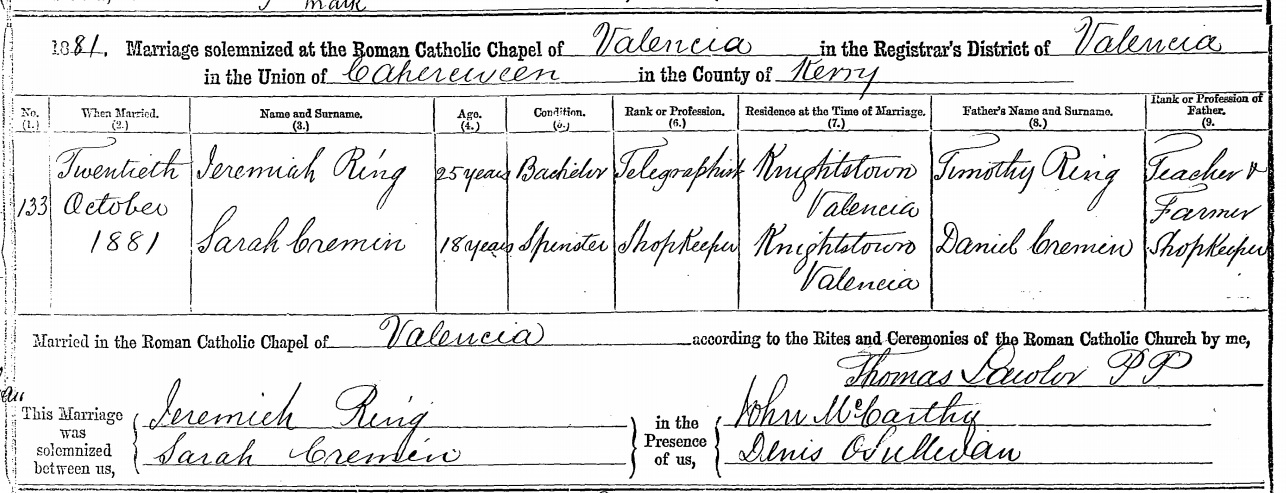 mark
1881. Marriage solemnized at the Roman Catholic Chapel of Valencia in the Registrar's District of Valencia
in the Union of Caherciveen in the County of Kerry
No. (1.) When Married. (2.) Name and Surname. (3.) Age. (4.) Condition. (5.) Rank or Profession. (6.) Residence at the Time of Marriage. (7.) Father's Name and Surname. (8.) Rank or Profession of Father. (9.
Twentieth Jeremiah Ring 25 years Bachelor Telegraphist Knightstown Timothy Ring Teacher &
133 October Valencia Farmer
1881 Sarah Cremin 18 years Spinster Shopkeeper Knightstown Daniel Cremin Shopkeeper
Valencia
Married in the Roman Catholic Chapel of Valencia according to the Rites and Ceremonies of the Roman Catholic Church by me,
Thomas Lawlor PP
This Marriage was solemnized between us, Jeremiah Ring in the Presence of us, John McCarthy
Sarah Cremin Denis O'Sullivan